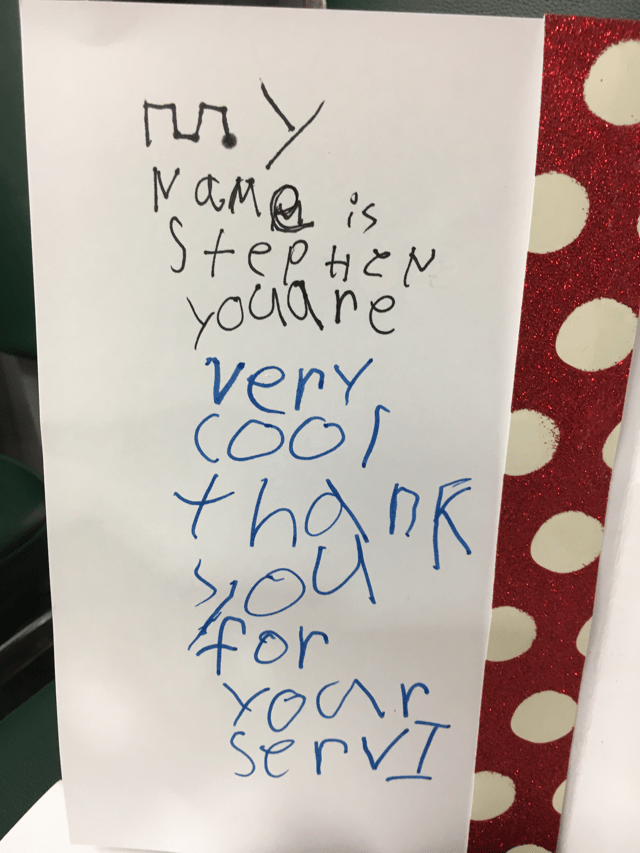 my
Name is
StepHeN
you are
very
cool
thank
you
for
your
servI